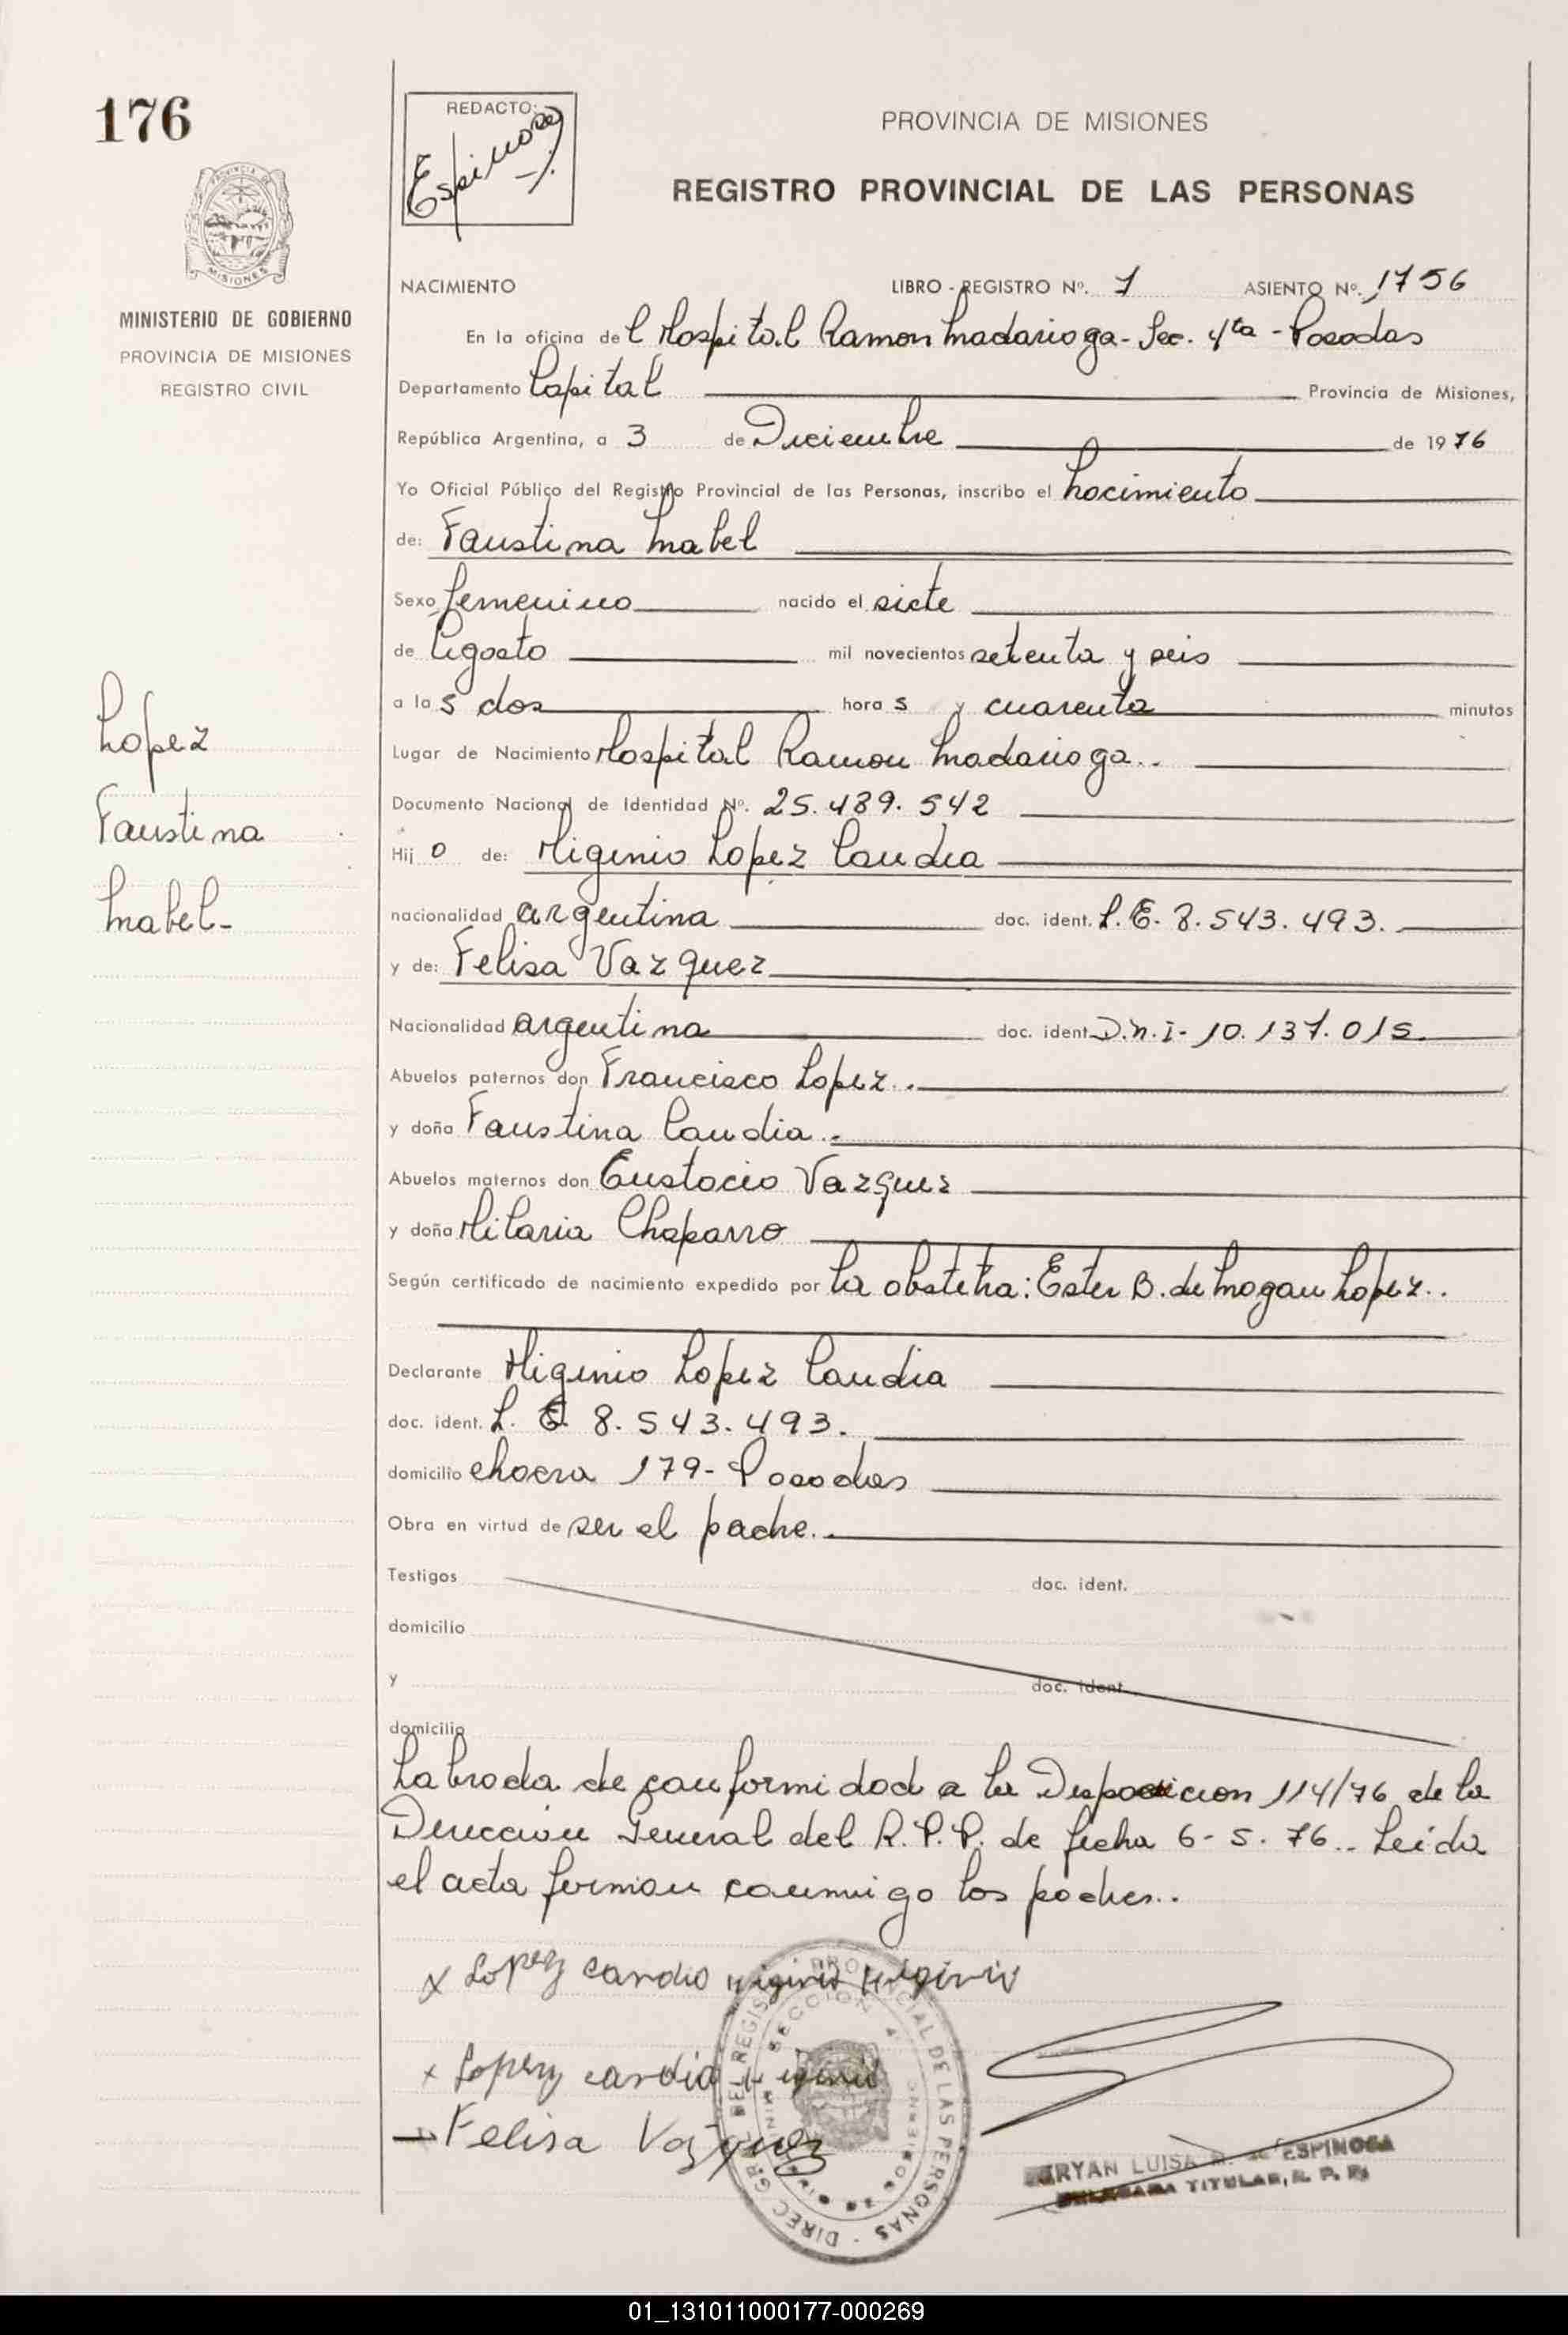 176
REDACTO:
Espinosa
PROVINCIA DE MISIONES
REGISTRO PROVINCIAL DE LAS PERSONAS
MISIONES
MINISTERIO DE GOBIERNO
PROVINCIA DE MISIONES
REGISTRO CIVIL
NACIMIENTO LIBRO - REGISTRO Nº. 1 ASIENTO Nº. 1756
En la oficina del Hospital Ramon Madariaga - Sec. 4ta - Posadas
Departamento Capital Provincia de Misiones,
República Argentina, a 3 de Diciembre de 1976
Yo Oficial Público del Registro Provincial de las Personas, inscribo el nacimiento
de: Faustina Mabel
Sexo femenino nacido el siete
de Agosto mil novecientos setenta y seis
a las dos horas y cuarenta minutos
Lugar de Nacimiento Hospital Ramon Madariaga..
Documento Nacional de Identidad Nº. 25.489.542
Hijo de: Higinio Lopez Candia
nacionalidad argentina doc. ident. L.E. 8.543.493.
y de: Felisa Vazquez
Nacionalidad argentina doc. ident. D.N.I- 10.137.015.
Abuelos paternos don Francisco Lopez..
y doña Faustina Candia..
Abuelos maternos don Eustocio Vazquez
y doña Hilaria Chaparro
Según certificado de nacimiento expedido por la obstetra: Ester B. de Mogan Lopez..
Declarante Higinio Lopez Candia
doc. ident. L. E. 8.543.493.
domicilio chacra 179- Posadas
Obra en virtud de ser el padre..
Testigos doc. ident.
domicilio
y doc. ident.
domicilio
Labrada de conformidad a la Disposicion 114/76 de la
Direccion General del R.P.P. de fecha 6-5.76.. Leida
el acta firman conmigo los padres..
Lopez
Faustina
Mabel-
x Lopez candio Higinio
x Lopez candia
Felisa Vazquez
DIREC. GRAL. DEL REGISTRO PROVINCIAL DE LAS PERSONAS
SECCION 4
LUISA ESPINOSA
TITULAR, R. P. P.
01_131011000177-000269